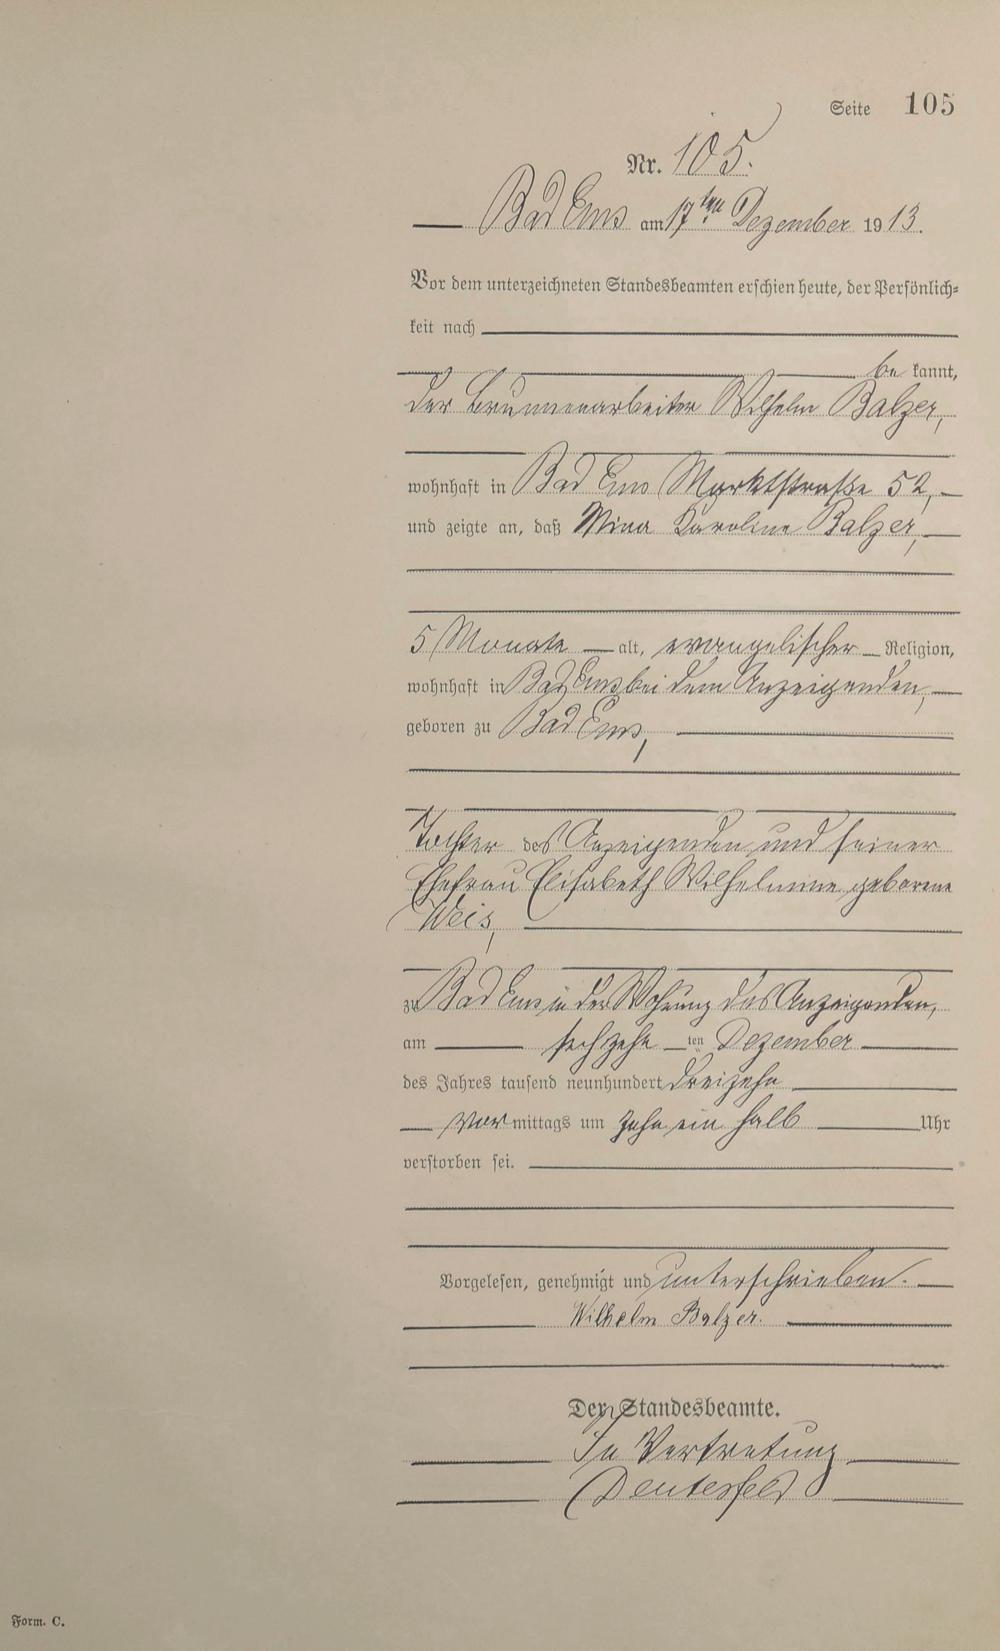 Seite 105
Nr. 105.
Bad Ems am 17ten Dezember 1913.
Vor dem unterzeichneten Standesbeamten erschien heute, der Persönlich-
keit nach
be kannt,
der Brunnenarbeiter Wilhelm Balzer,
wohnhaft in Bad Ems Marktstraße 52,
und zeigte an, daß Mina Karoline Balzer,
5 Monate alt, evangelischer Religion,
wohnhaft in Bad Ems bei dem Anzeigenden,
geboren zu Bad Ems,
Tochter des Anzeigenden und seiner
Ehefrau Elisabeth Wilhelmine geborene
Weis,
zu Bad Ems in der Wohnung des Anzeigenden,
am sechzehn ten Dezember
des Jahres tausend neunhundert dreizehn
Vor mittags um zehn ein halb Uhr
verstorben sei.
Vorgelesen, genehmigt und unterschrieben.
Wilhelm Balzer.
Der Standesbeamte.
In Vertretung
Form. C.